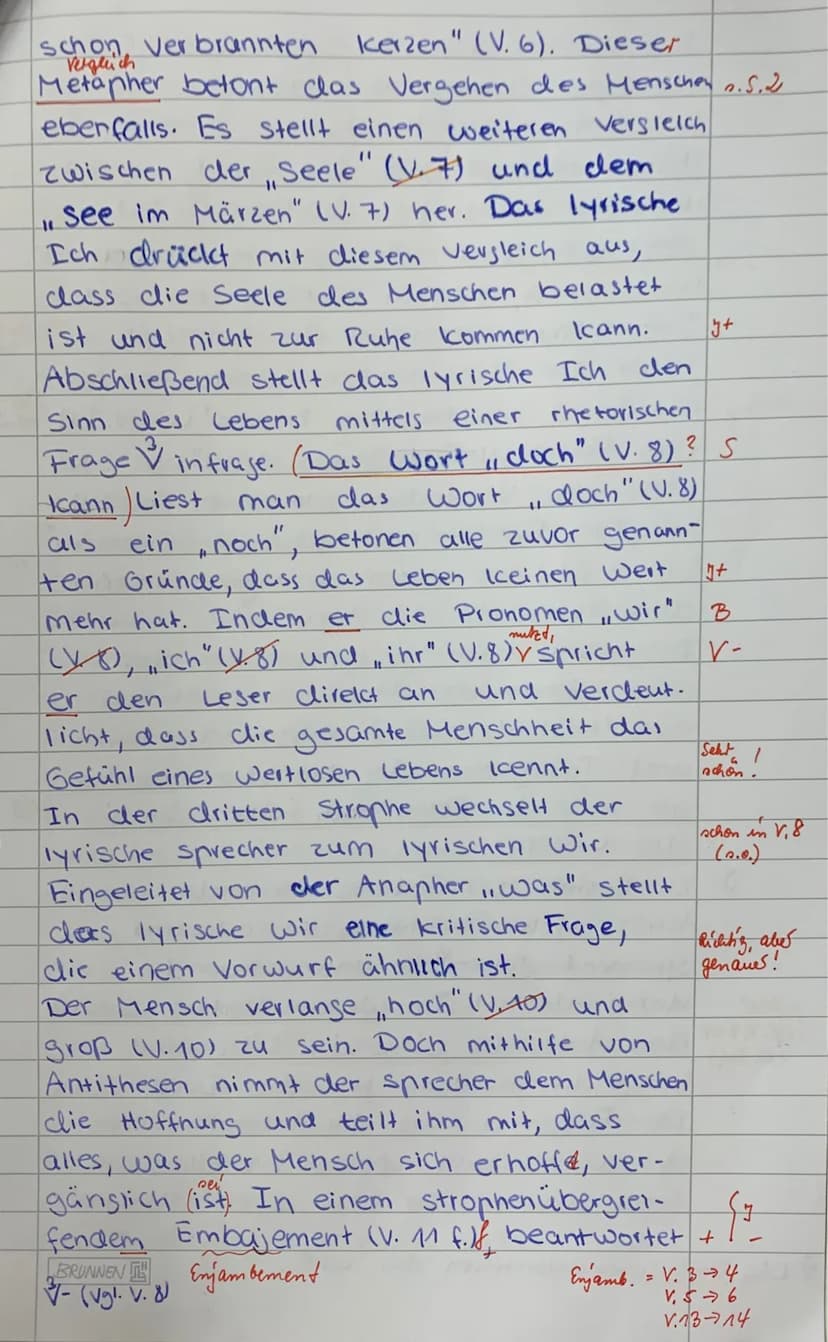 schon verbrannten Kerzen" (V. 6). Dieser
Vergleich
Metapher betont das Vergehen des Menschen s. S. 2
ebenfalls. Es stellt einen weiteren Vergleich
zwischen der „Seele" (V. 7) und dem
„See im Märzen" (V. 7) her. Das lyrische
Ich drückt mit diesem Vergleich aus,
dass die Seele des Menschen belastet
ist und nicht zur Ruhe kommen kann. J+
Abschließend stellt das lyrische Ich den
Sinn des Lebens mittels einer rhetorischen
Frage ³ infrage. (Das Wort „doch" (V. 8) ? S
kann) Liest man das Wort „doch" (V. 8)
als ein „noch", betonen alle zuvor genann-
ten Gründe, dass das Leben keinen Wert J+
mehr hat. Indem er die Pronomen „wir" B
nutzt,
(V. 8), „ich" (V. 8) und „ihr" (V. 8) spricht V-
er den Leser direkt an und verdeut-
licht, dass die gesamte Menschheit das
Gefühl eines wertlosen Lebens kennt. Sehr schön!
In der dritten Strophe wechselt der
lyrische Sprecher zum lyrischen Wir. schon in V. 8 (s.o.)
Eingeleitet von der Anapher „was" stellt
das lyrische Wir eine kritische Frage,
die einem Vorwurf ähnlich ist. Richtig, aber genauer!
Der Mensch verlange „hoch" (V. 10) und
groß (V. 10) zu sein. Doch mithilfe von
Antithesen nimmt der Sprecher dem Menschen
die Hoffnung und teilt ihm mit, dass
alles, was der Mensch sich erhofft, ver-
sei
gänglich (ist). In einem strophenübergrei-
fendem Embajement (V. 11 f.), beantwortet + J -
BRUNNEN Enjambement Enjamb. = V. 3 → 4
³ - (Vgl. V. 8) V. 5 → 6
V. 13 → 14